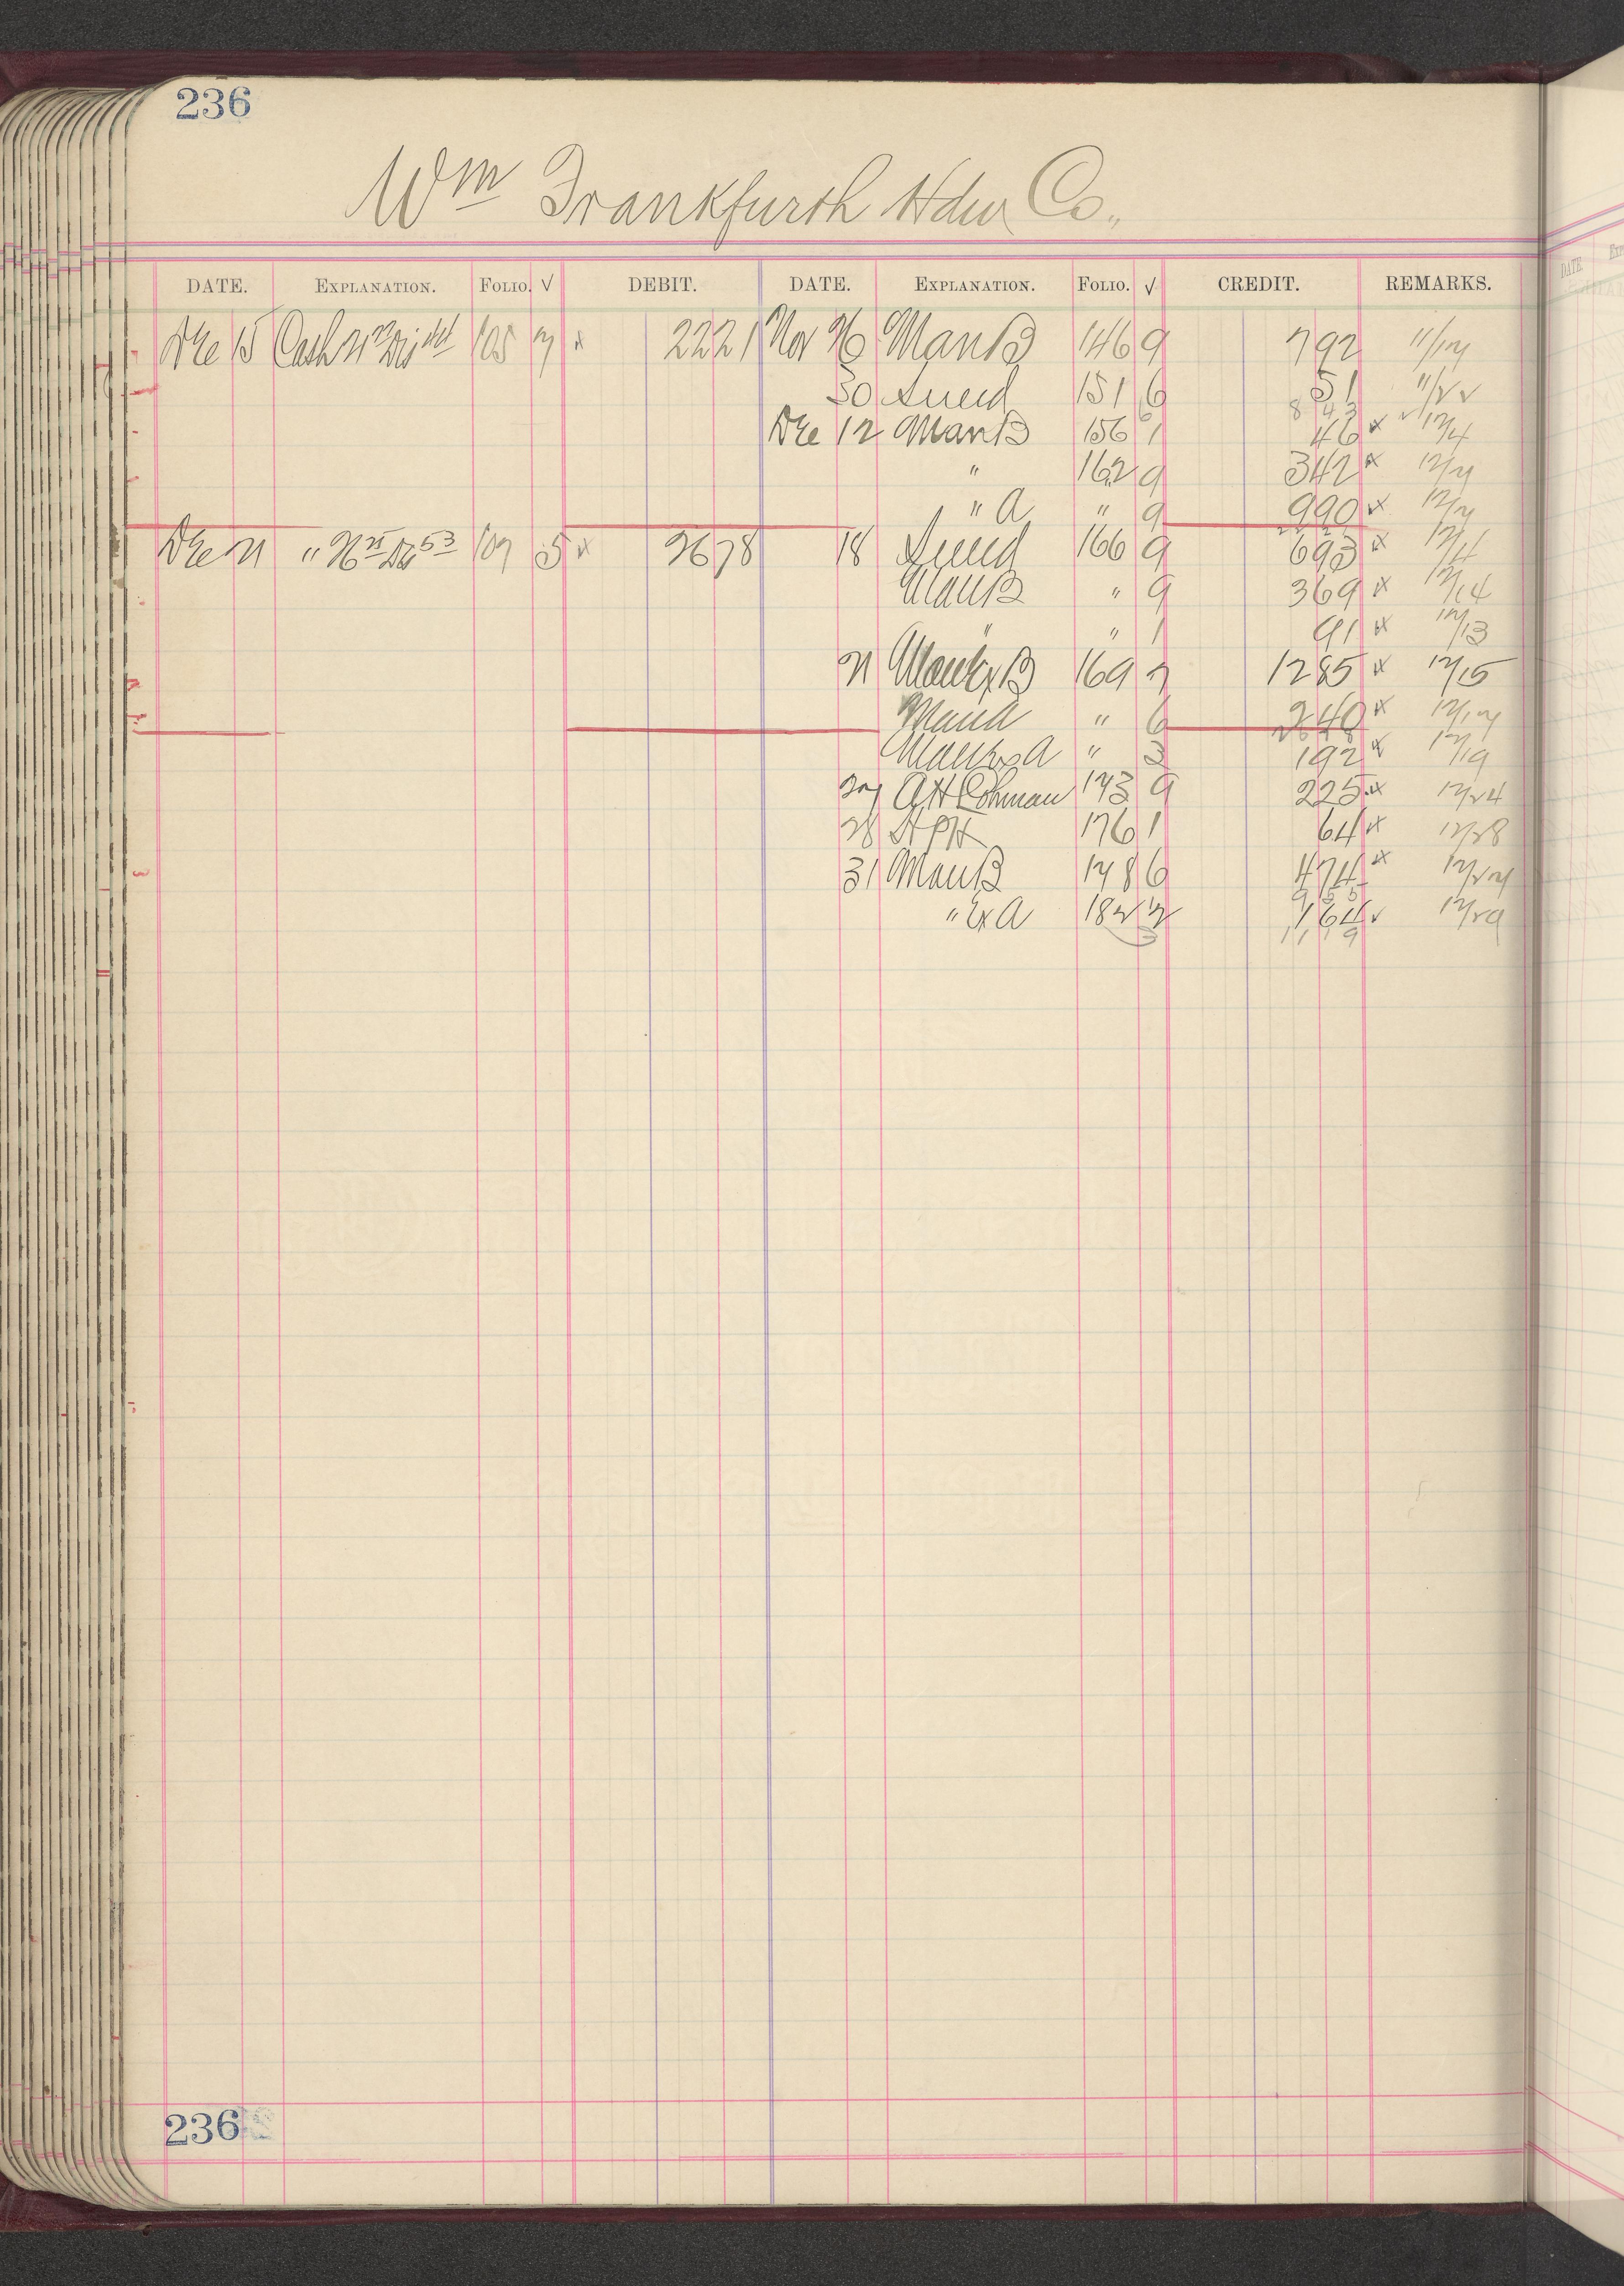 236
Wm Frankfurth Hdw Co.,
DATE. EXPLANATION. FOLIO. √ DEBIT. DATE. EXPLANATION. FOLIO. √ CREDIT. REMARKS.
Dec 15 Cash 105 7 x 2221 Nov 26 Man B 146 9 792 11/17
30 Sued 151 6 51 11/22
843
Dec 12 Man B 156 1 46 x 12/4
" 162 9 342 x 12/7
" A " 9 990 x 12/7
Dec 21 " 107 5 x 2678 18 Sued 166 9 693 x 12/11
Man B " 9 369 x 12/14
" " 1 91 x 12/13
21 Man Ex B 169 7 1285 x 12/15
Man A " 6 240 x 12/17
Man Ex A " 3 192 x 12/19
27 A H Lohman 173 9 225 x 12/24
28 H P H 176 1 64 x 12/28
31 Man B 178 6 474 x 12/27
955
" Ex A 182 164 √ 12/29
1119
236